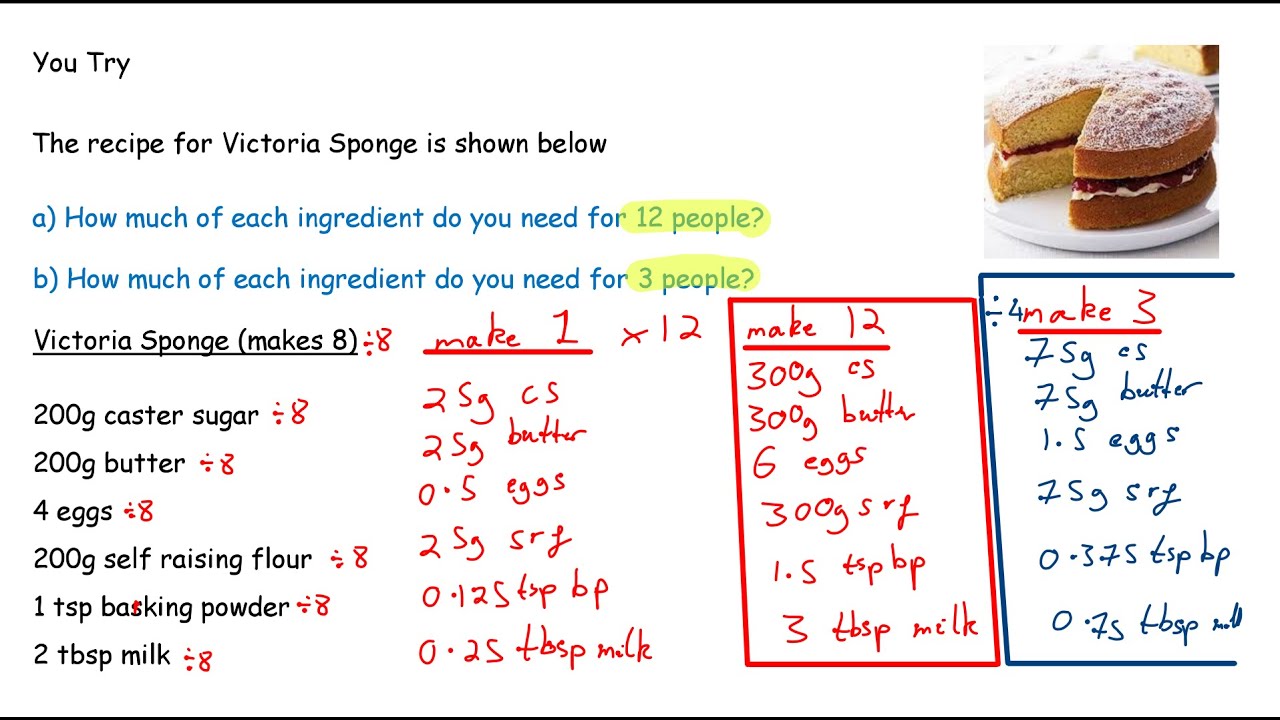 You Try
The recipe for Victoria Sponge is shown below
a) How much of each ingredient do you need for 12 people?
b) How much of each ingredient do you need for 3 people?
Victoria Sponge (makes 8) ÷8
200g caster sugar ÷8
200g butter ÷8
4 eggs ÷8
200g self raising flour ÷8
1 tsp basking powder ÷8
2 tbsp milk ÷8
make 1 x 12
25g cs
25g butter
0.5 eggs
25g srf
0.125 tsp bp
0.25 tbsp milk
make 12
300g cs
300g butter
6 eggs
300g srf
1.5 tsp bp
3 tbsp milk
÷4 make 3
75g cs
75g butter
1.5 eggs
75g srf
0.375 tsp bp
0.75 tbsp milk